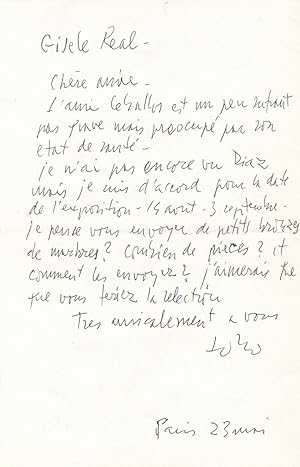 Gisele Real -
Chère amie -
L'ami Ceballos est un peu
pas grave mais preocupé par son
etat de santé -
je n'ai pas encore vu Diaz
mais je suis d'accord pour la date
de l'exposition - 15 aout - 3 septembre -
je pense vous envoyer de petits bronzes
de marbres? Combien de pieces? et
comment les envoyer? j'aimerais
que vous feriez la selection
Tres amicalement a vous
Paris 23 mai